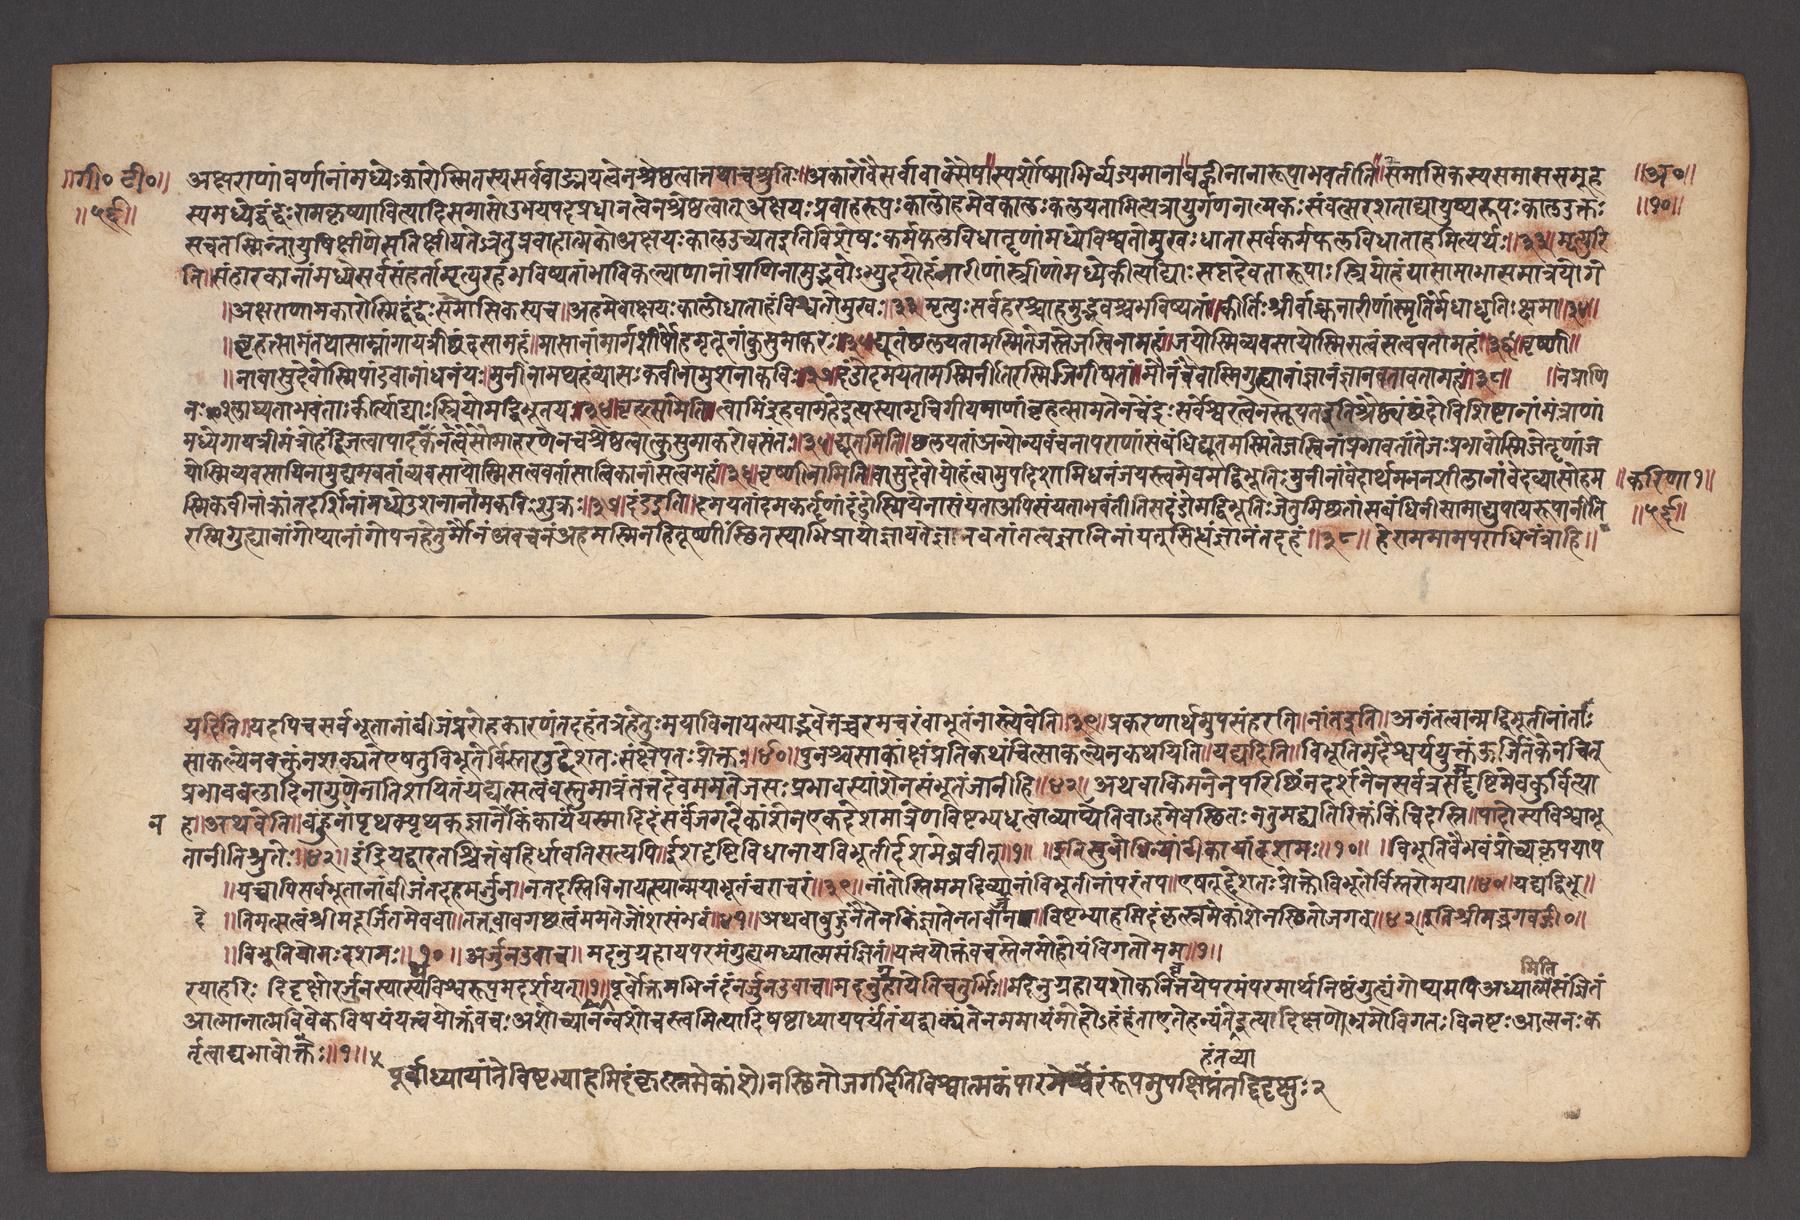 ॥गी० टी०॥
॥५६॥
॥अ०॥
॥१०॥
अक्षराणांवर्णानांमध्येऽकारोस्मितस्यसर्ववाङ्मयत्वेनश्रेष्ठत्वात्तथाचश्रुतिः॥अकारोवैसर्वावाक्सैषास्पर्शोष्माभिर्व्यज्यमानाबह्वीनानारूपाभवतीति॥समासिकस्यसमाससमूह
स्यमध्येद्वंद्वःरामकृष्णावित्यादिसमासोऽउभयपदप्रधानत्वेनश्रेष्ठत्वात्अक्षयःप्रवाहरूपःकालोहमेवकालःकलयतामित्यत्रायुर्गणनात्मकःसंवत्सरशताद्यायुष्यरूपःकालउक्तः
सचतस्मिन्नायुषिक्षीणेसतिक्षीयतेऽत्रतुप्रवाहात्मकोअक्षयःकालउच्यतइतिविशेषःकर्मफलविधातॄणांमध्येविश्वतोमुखःधातासर्वकर्मफलविधाताहमित्यर्थः॥३३॥मृत्युरि
ति॥संहारकानांमध्येसर्वसंहर्तामृत्युरहंभविष्यतांभाविकल्याणानांप्राणिनामुद्भवोऽभ्युदयोहंनारीणांस्त्रीणांमध्येकीर्त्याद्याःसप्तदेवतारूपाःस्त्रियोहंयासामाभासमात्रयोगे
॥अक्षराणामकारोस्मिद्वंद्वःसमासिकस्यच॥अहमेवाक्षयःकालोधाताहंविश्वतोमुखः॥३३मृत्युःसर्वहरश्चाहमुद्भवश्चभविष्यतां॥कीर्तिःश्रीर्वाक्चनारीणांस्मृतिर्मेधाधृतिःक्षमा॥३४॥
॥बृहत्सामतथासाम्नांगायत्रीछंदसामहं॥मासानांमार्गशीर्षोहमृतूनांकुसुमाकरः॥३५द्यूतंछलयतामस्मितेजस्तेजस्विनामहं॥जयोस्मिव्यवसायोस्मिसत्वंसत्ववतामहं॥३६॥वृष्णी॥
॥नांवासुदेवोस्मिपांडवानांधनंजयः॥मुनीनामप्यहंव्यासःकवीनामुशनाकविः॥३७दंडोदमयतामस्मिनीतिरस्मिजिगीषतां॥मौनंचैवास्मिगुह्यानांज्ञानंज्ञानवतामहं॥३८॥ ॥नप्राणि
नःश्लाघ्यताभवंताःकीर्त्याद्याःस्त्रियोमद्विभूतयः॥३४॥बृहत्सामेति॥त्वामिद्धिहवामहेइत्यस्यामृचिगीयमाणंबृहत्सामतेनचेंद्रःसर्वेश्वरत्वेनस्तूयतइतिश्रैष्ठ्यंछंदोविशिष्टानांमंत्राणां
मध्येगायत्रीमंत्रोहंद्विजत्वापादकेनत्वेसोमाहरणेनचश्रेष्ठत्वात्कुसुमाकरोवसंतः॥३५॥द्यूतमिति॥छलयतांअन्योन्यवंचनापराणांसंबंधिद्यूतमस्मितेजस्विनांप्रभाववतांतेजःप्रभावोस्मिजेतॄणांज
योस्मिव्यवसायिनामुद्यमवतांव्यवसायोस्मिसत्ववतांसात्विकानांसत्वमहं॥३६॥वृष्णीनामिति॥वासुदेवोयोहंत्वामुपदिशामिधनंजयस्त्वमेवमद्विभूतिःमुनीनांवेदार्थमननशीलानांवेदव्यासोहम
॥करिणा१॥
स्मिकवीनांक्रांतदर्शिनांमध्येउशनानामकविःशुक्रः॥३७॥दंडइति॥दमयतांदमकर्तॄणांदंडोस्मियेनासंयताअपिसंयताभवंतीतिसदंडोमद्विभूतिःजेतुमिच्छतांसंबंधिनीसामाद्युपायरूपानीति
॥५६॥
रस्मिगुह्यानांगोप्यानांगोपनहेतुर्मौनंअवचनंअहमस्मिनहितूष्णींस्थितस्याभिप्रायोज्ञायतेज्ञानवतांतत्वज्ञानिनांयत्सिद्धंज्ञानंतदहं॥३८॥ हेराममामपराधिनंत्राहि॥
यदिति॥यदपिचसर्वभूतानांबीजंप्ररोहकारणंतदहंतत्रहेतुःमयाविनायत्स्याद्भवेत्तच्चरमचरंवाभूतंनास्त्येवेति॥३९॥प्रकरणार्थमुपसंहरति॥नांतइति॥अनंतत्वान्मद्विभूतीनांतः
साकल्येनवक्तुंनशक्यतेएषतुविभूतेर्विस्तरउद्देशतःसंक्षेपतःप्रोक्तः॥४०॥पुनश्चसाकांक्षंप्रतिकथंचित्साकल्येनकथयति॥यद्यदिति॥विभूतिमदैश्वर्ययुक्तंऊर्जितंकेनचित्
प्रभावबलादिनागुणेनातिशयितंयद्यत्सत्वंवस्तुमात्रंतत्तदेवममतेजसःप्रभावस्यांशेनसंभूतंजानीहि॥४१॥ अथवाकिमनेनपरिच्छिन्नदर्शनेनसर्वत्रसदृष्टिमेवकुर्वित्या
न
ह॥अथवेति॥बहुनापृथक्पृथक्ज्ञातेनकिंकार्यंयस्मादिदंसर्वंजगदेकांशेनएकदेशमात्रेणविष्टभ्यधृत्वाव्याप्येतिवाऽहमेवस्थितःनतुमद्व्यतिरिक्तंकिंचिदस्ति॥पादोस्यविश्वाभू
तानीतिश्रुतेः॥४२॥इंद्रियद्वारतश्चित्तंबहिर्धावतिसत्यपि॥ईशदृष्टिविधानायविभूतीर्दशमेब्रवीत्॥१॥ ॥इतिसुबोधिन्यांटीकायांदशमः॥१०॥ ॥विभूतिवैभवंप्रोच्यकृपयाप
॥यच्चापिसर्वभूतानांबीजंतदहमर्जुन॥नतदस्तिविनायत्स्यान्मयाभूतंचराचरं॥३९॥नांतोस्तिममदिव्यानांविभूतीनांपरंतप॥एषतूद्देशतःप्रोक्तोविभूतेर्विस्तरोमया॥४०॥यद्यद्विभू॥
दे
॥तिमत्सत्वंश्रीमदूर्जितमेववा॥तत्तदेवावगच्छत्वंममतेजोंशसंभवं॥४१॥अथवाबहुनैतेनकिंज्ञातेनतवार्जुन॥विष्टभ्याहमिदंकृत्स्नमेकांशेनस्थितोजगत्॥४२॥इतिश्रीमद्भगवद्गी०॥
॥विभूतियोगःदशमः॥१०॥अर्जुनउवाच॥ मदनुग्रहायपरमंगुह्यमध्यात्मसंज्ञितं॥यत्त्वयोक्तंवचस्तेनमोहोयंविगतोमम॥१॥
मिति
रयाहरिः दिदृक्षोरर्जुनस्यास्यविश्वरूपमदर्शयत्॥१॥पूर्वोक्तमभिनंदन्नर्जुनउवाच॥मदनुग्रहायेतिचतुर्भिः॥मदनुग्रहायशोकनिवृत्तयेपरमंपरमार्थनिष्ठंगुह्यंगोप्यमपिअध्यात्मसंज्ञितं
आत्मानात्मविवेकविषयंयत्त्वयोक्तंवचःअशोच्यानन्वशोचस्त्वमित्यादिषष्ठाध्यायपर्यंतंयद्वाक्यंतेनममायंमोहोऽहंहंताएतेहन्यंतेइत्यादिक्षणोभ्रमोविगतःविनष्टःआत्मनःक
र्तृत्वाद्यभावोक्तेः॥१॥
हंतव्या
पूर्वाध्यायांतेविष्टभ्याहमिदंकृत्स्नमेकांशेनस्थितोजगदितिविश्वात्मकंपारमेश्वरंरूपमुपक्षिप्तंतद्दिदृक्षुः२